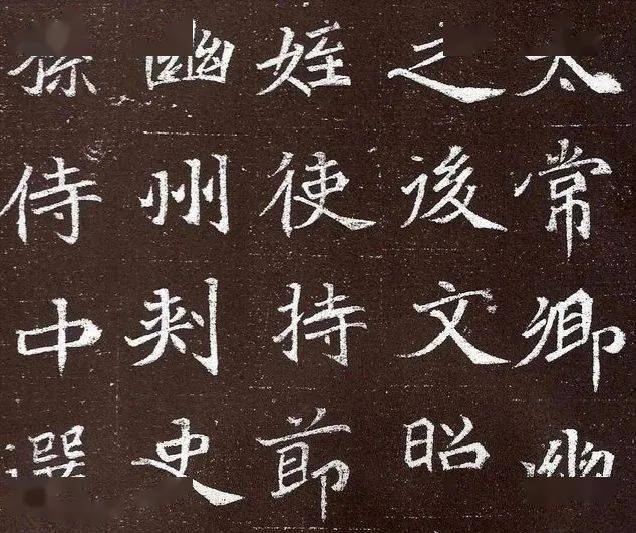 太常卿
之後文昭
姪使持節
幽州刺史
孫侍中選